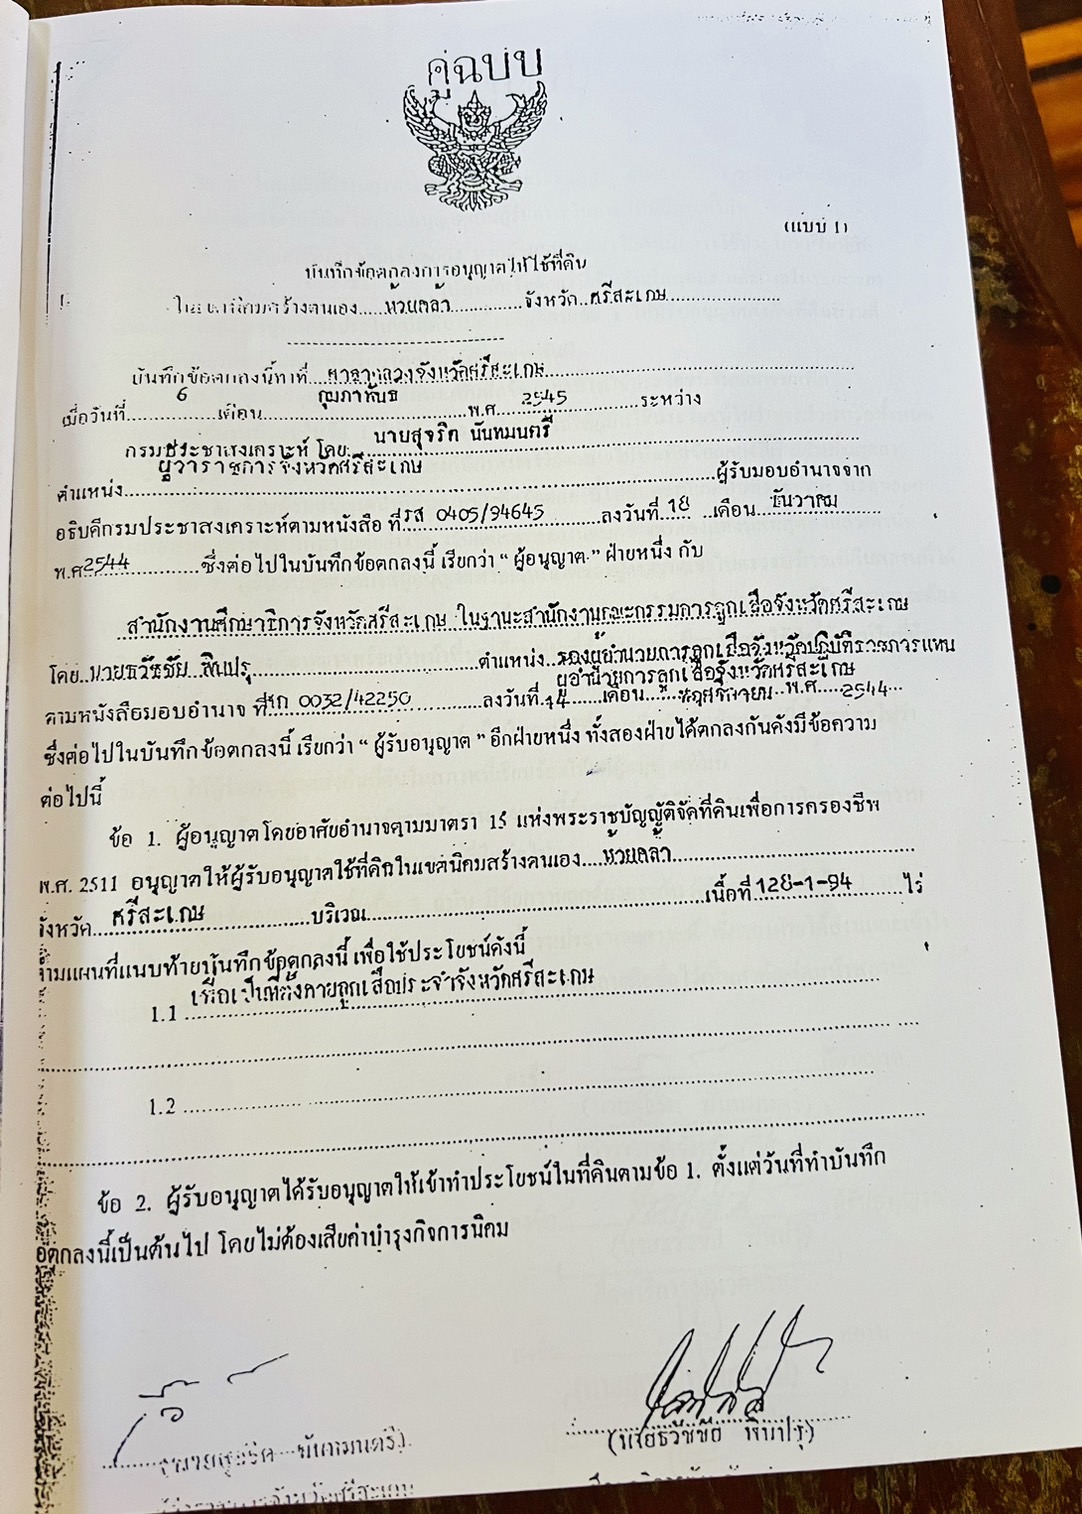 คู่ฉบับ
(แบบ 1)
บันทึกข้อตกลงการอนุญาตให้ใช้ที่ดิน
ในเขตนิคมสร้างตนเอง....ห้วยคล้า..............จังหวัด..ศรีสะเกษ......................
บันทึกข้อตกลงนี้ทำที่...ศาลากลางจังหวัดศรีสะเกษ
เมื่อวันที่ 6 เดือน กุมภาพันธ์ พ.ศ. 2545 ระหว่าง
กรมประชาสงเคราะห์ โดย นายสุจริต นันทมนตรี
ผู้ว่าราชการจังหวัดศรีสะเกษ
ตำแหน่ง..............................ผู้รับมอบอำนาจจาก
อธิบดีกรมประชาสงเคราะห์ตามหนังสือ ที่ รส 0405/94645 ลงวันที่ 18 เดือน ธันวาคม
พ.ศ 2544 ซึ่งต่อไปในบันทึกข้อตกลงนี้ เรียกว่า “ ผู้อนุญาต ” ฝ่ายหนึ่ง กับ
สำนักงานศึกษาธิการจังหวัดศรีสะเกษ ในฐานะสำนักงานคณะกรรมการลูกเสือจังหวัดศรีสะเกษ
โดย นายธวัชชัย สินปรุ ตำแหน่ง รองผู้อำนวยการลูกเสือจังหวัดปฏิบัติราชการแทน
ผู้อำนวยการลูกเสือจังหวัดศรีสะเกษ
ตามหนังสือมอบอำนาจ ที่ 0032/42250 ลงวันที่ 14 เดือน พฤศจิกายน พ.ศ. 2544
ซึ่งต่อไปในบันทึกข้อตกลงนี้ เรียกว่า “ ผู้รับอนุญาต ” อีกฝ่ายหนึ่ง ทั้งสองฝ่ายได้ตกลงกันดังมีข้อความ
ต่อไปนี้
ข้อ 1. ผู้อนุญาตโดยอาศัยอำนาจตามมาตรา 15 แห่งพระราชบัญญัติจัดที่ดินเพื่อการครองชีพ
พ.ศ. 2511 อนุญาตให้ผู้รับอนุญาตใช้ที่ดินในเขตนิคมสร้างตนเอง....ห้วยคล้า
จังหวัด ศรีสะเกษ บริเวณ..............................เนื้อที่ 128-1-94 ไร่
ตามแผนที่แนบท้ายบันทึกข้อตกลงนี้ เพื่อใช้ประโยชน์ดังนี้
1.1 เพื่อเป็นที่ตั้งค่ายลูกเสือประจำจังหวัดศรีสะเกษ
1.2 ..............................
ข้อ 2. ผู้รับอนุญาตได้รับอนุญาตให้เข้าทำประโยชน์ในที่ดินตามข้อ 1. ตั้งแต่วันที่ทำบันทึก
อตกลงนี้เป็นต้นไป โดยไม่ต้องเสียค่าบำรุงกิจการนิคม
(นายสุจริต นันทมนตรี) (นายธวัชชัย สินปรุ)
ผู้ว่าราชการจังหวัดศรีสะเกษ